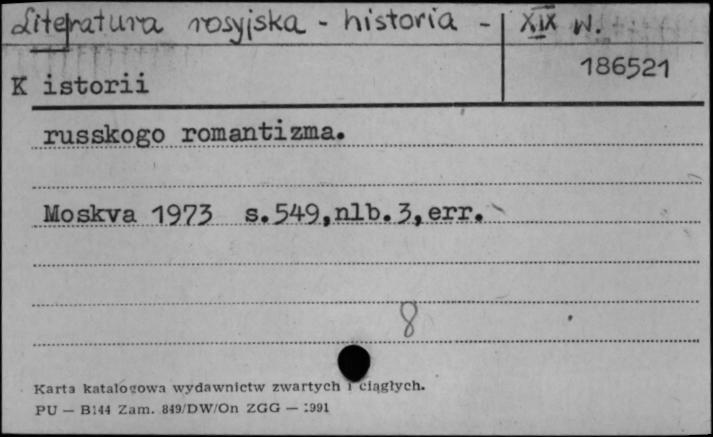 Literatura rosyjska - historia - XIX w.
186521
K istorii
russkogo romantizma.
Moskva 1973 s.549,nlb.3,err.
8
Karta katalogowa wydawnictw zwartych i ciągłych.
PU — B144 Zam. 849/DW/On ZGG — 1991